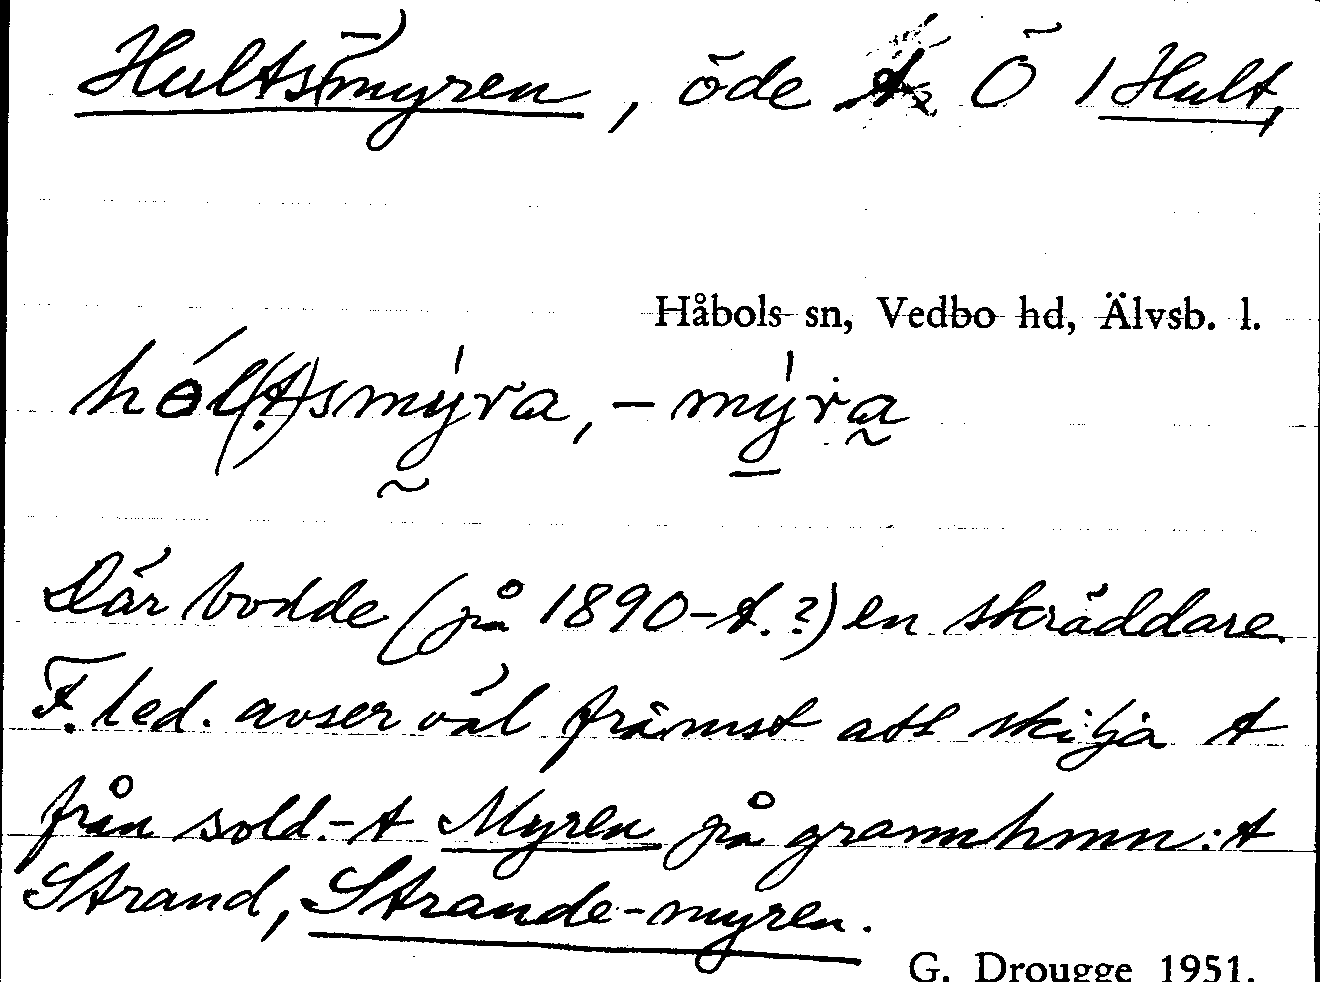 Hults(-)myren, öde t. Ö / Hult,
Håbols sn, Vedbo hd, Älvsb. l.
hál(t)smýra, - mýra
Där bodde (på 1890-t.?) en skräddare.
F. led. avser väl främst att skilja t
från sold.-t Myren på grannhmn:t
Strand, Strande-myren.
G. Drougge 1951.